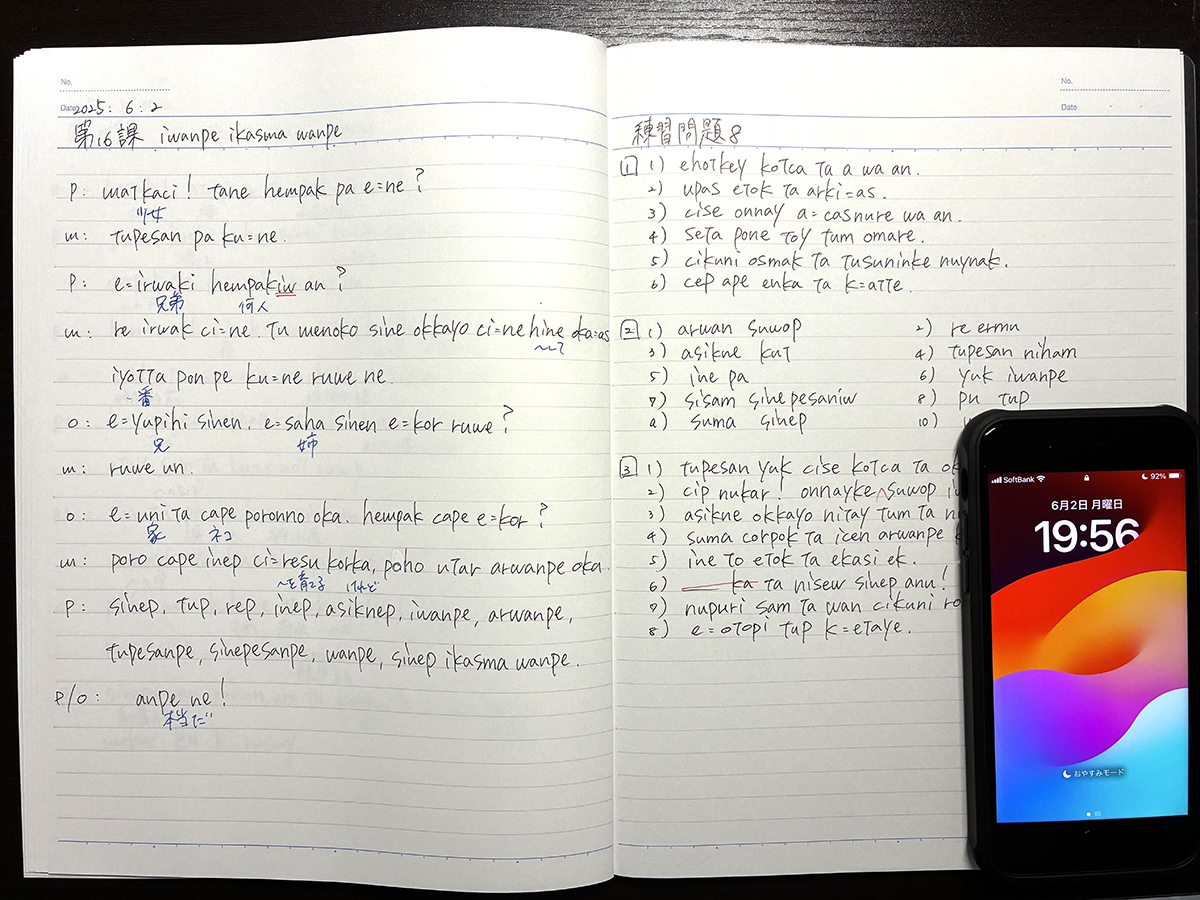 No.
Date 2025. 6. 2
第16課 iwanpe ikasma wanpe
P: matkaci! tane hempak pa e=ne?
少女
m: tupesan pa ku=ne.
P: e=irwaki hempakiw an?
兄弟 何人
m: re irwak ci=ne. tu menoko sine okkayo ci=ne hine oka=as
〜して
iyotta pon pe ku=ne ruwe ne.
一番
o: e=yupihi sinen, e=saha sinen e=kor ruwe?
兄 姉
m: ruwe un.
o: e=uni ta cape poronno oka. hempak cape e=kor?
家 ネコ
m: poro cape inep ci=resu korka, poho utar arwanpe oka.
〜を育てる けれど
P: sinep, tup, rep, inep, asiknep, iwanpe, arwanpe,
tupesanpe, sinepesanpe, wanpe, sinep ikasma wanpe.
P/o: anpe ne!
本当だ
No.
Date
練習問題8
1 1) ehotkey kotca ta a wa an.
2) upas etok ta arki=as.
3) cise onnay a=casnure wa an.
4) seta pone toy tum omare.
5) cikuni osmak ta tusuninke nuynak.
6) cep ape enka ta k=atte.
2 1) arwan suwop 2) re ermu
3) asikne kut 4) tupesan niham
5) ine pa 6) yuk iwanpe
7) sisam sinepesaniw 8) pu tup
9) suma sinep 10)
3 1) tupesan yuk cise kotca ta
2) cip nukar! onnayke suwop
3) asikne okkayo nitay tum ta
4) suma corpok ta icen arwanpe
5) ine to etok ta ekasi ek.
6) ka ta nisew sinep anu!
7) nupuri sam ta wan cikuni
8) e=otopi tup k=etaye.
SoftBank 92%
6月2日 月曜日
19:56
おやすみモード